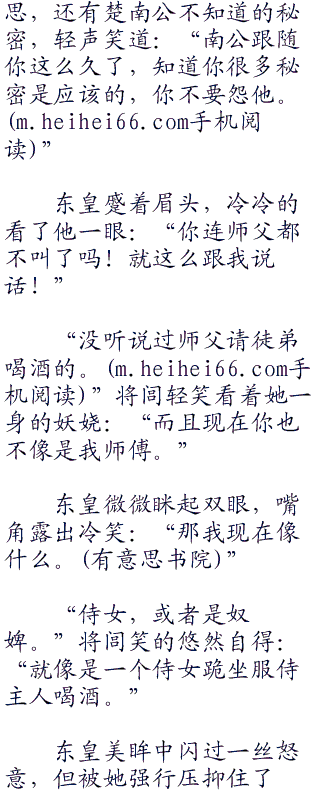 思，还有楚南公不知道的秘
密，轻声笑道：“南公跟随
你这么久了，知道你很多秘
密是应该的，你不要怨他。
(m.heihei66.com手机阅
读)”
东皇蹙着眉头，冷冷的
看了他一眼：“你连师父都
不叫了吗！就这么跟我说
话！”
“没听说过师父请徒弟
喝酒的。(m.heihei66.com手
机阅读)”将闾轻笑看着她一
身的妖娆：“而且现在你也
不像是我师傅。”
东皇微微眯起双眼，嘴
角露出冷笑：“那我现在像
什么。(有意思书院)”
“侍女，或者是奴
婢。”将闾笑的悠然自得：
“就像是一个侍女跪坐服侍
主人喝酒。”
东皇美眸中闪过一丝怒
意，但被她强行压抑住了